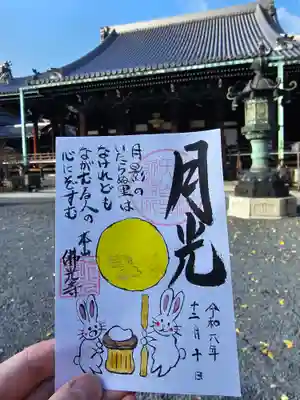 月光
令和六年
十二月十日
月影の
いたらぬ里は
なけれども
ながむる人の
心にぞすむ
本山
佛光寺